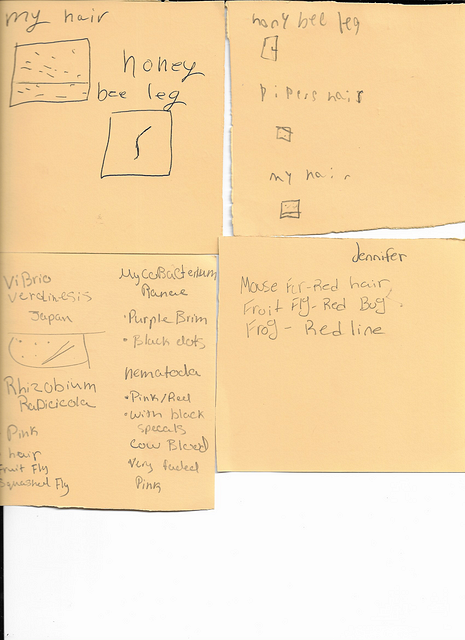 my hair
honey
bee leg
hony bee leg
pipers hair
my hair
Jennifer
Mouse Fur-Red hair
Fruit Fly-Red Bug
Frog - Red line
ViBrio
Verdinesis
Japan
Rhizobium
Radicicola
Pink
hair
Fruit Fly
Squashed Fly
MycoBacterium
Ranae
•Purple Brim
•Black dots
nematoda
•Pink/Red
•with black
specals
Cow Blood
Very faded
Pink